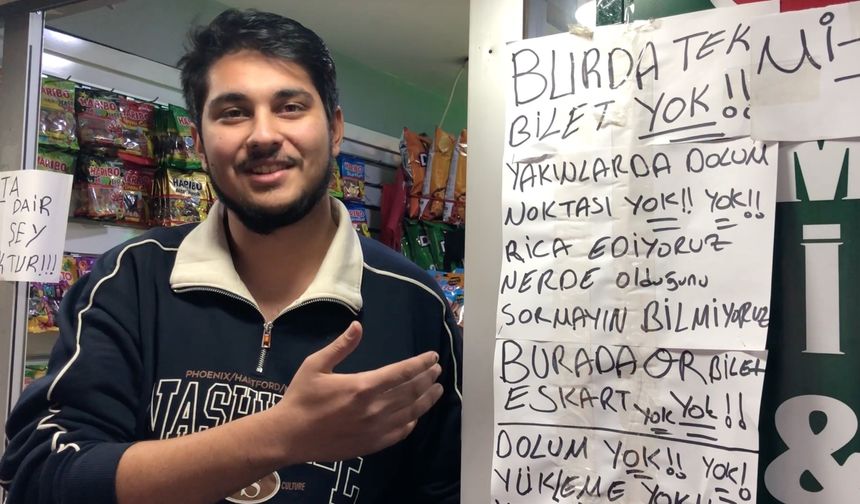 BURDA TEK
BİLET YOK!!
YAKINLARDA DOLUM
NOKTASI YOK!! YOK!!
RİCA EDİYORUZ
NERDE olduğunu
SORMAYIN BİLMİYORUZ
BURADA QR BİLET
ESKART YOK YOK!!
DOLUM YOK!! YOK!
YÜKLEME YOK!
Mİ-
TA
DAİR
ŞEY
KTUR!!!
HARIBO
HARIBO
HARIBO
HARIBO
HARIBO
HARIBO
HARIBO
PHOENIX/HARTFORD/
NASHV
CULTURE
M
İ
&